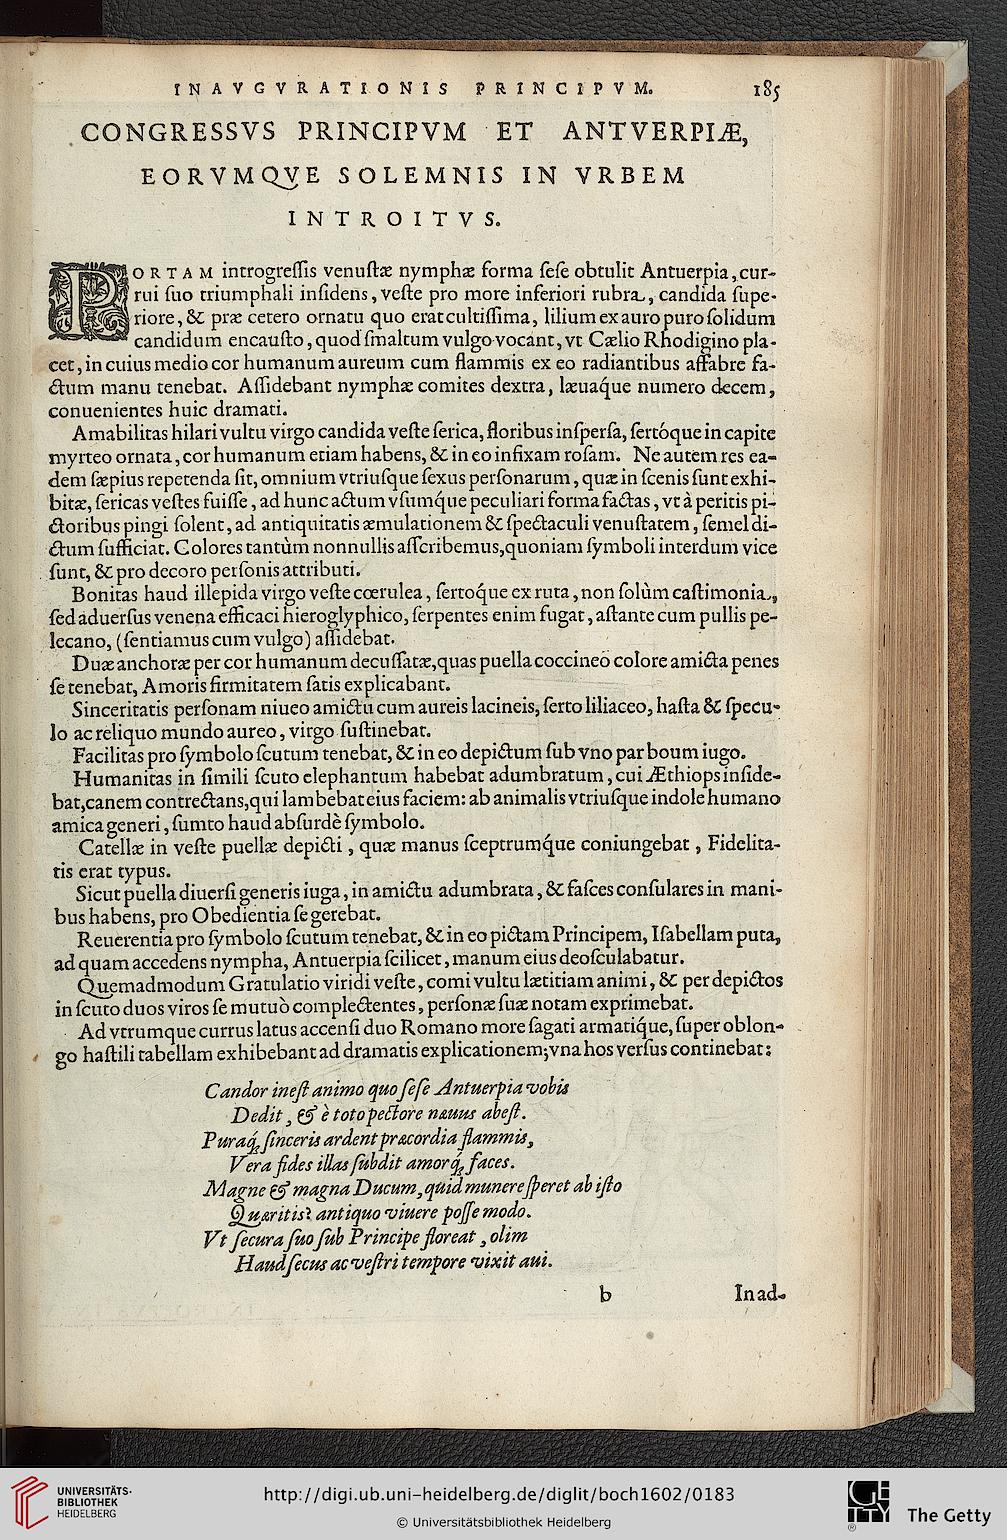 INAVGVRATIONIS PRINCIPVM. 185
CONGRESSVS PRINCIPVM ET ANTVERPIÆ,
EORVMQVE SOLEMNIS IN VRBEM
INTROITVS.
PORTAM introgreſſis venuſtæ nymphæ forma ſeſe obtulit Antuerpia, cur-
rui ſuo triumphali inſidens, veſte pro more inferiori rubra, candida ſupe-
riore, & præ cetero ornatu quo erat cultiſſima, lilium ex auro puro ſolidum
candidum encauſto, quod ſmaltum vulgo vocant, vt Cælio Rhodigino pla-
cet, in cuius medio cor humanum aureum cum flammis ex eo radiantibus affabre fa-
ctum manu tenebat. Aſſidebant nymphæ comites dextra, læuaque numero decem,
conuenientes huic dramati.
Amabilitas hilari vultu virgo candida veſte ſerica, floribus inſperſa, ſertóque in capite
myrteo ornata, cor humanum etiam habens, & in eo infixam roſam. Ne autem res ea-
dem ſæpius repetenda ſit, omnium vtriuſque ſexus perſonarum, quæ in ſcenis ſunt exhi-
bitæ, ſericas veſtes fuiſſe, ad hunc actum vſumq́ue peculiari forma factas, vt à peritis pi-
ctoribus pingi ſolent, ad antiquitatis æmulationem & ſpectaculi venuſtatem, ſemel di-
ctum ſufficiat. Colores tantùm nonnullis aſſcribemus, quoniam ſymboli interdum vice
ſunt, & pro decoro perſonis attributi.
Bonitas haud illepida virgo veſte cœrulea, ſertoq́ue ex ruta, non ſolùm caſtimonia,
ſed aduerſus venena efficaci hieroglyphico, ſerpentes enim fugat, aſtante cum pullis pe-
lecano, (ſentiamus cum vulgo) aſſidebat.
Duæ anchoræ per cor humanum decuſſatæ, quas puella coccineo colore amicta penes
ſe tenebat, Amoris firmitatem ſatis explicabant.
Sinceritatis perſonam niueo amictu cum aureis lacineis, ſerto liliaceo, haſta & ſpecu-
lo ac reliquo mundo aureo, virgo ſuſtinebat.
Facilitas pro ſymbolo ſcutum tenebat, & in eo depictum ſub vno par boum iugo.
Humanitas in ſimili ſcuto elephantum habebat adumbratum, cui Æthiops inſide-
bat, canem contrectans, qui lambebat eius faciem: ab animalis vtriuſque indole humano
amica generi, ſumto haud abſurdè ſymbolo.
Catellæ in veſte puellæ depicti, quæ manus ſceptrumq́ue coniungebat, Fidelita-
tis erat typus.
Sicut puella diuerſi generis iuga, in amictu adumbrata, & faſces conſulares in mani-
bus habens, pro Obedientia ſe gerebat.
Reuerentia pro ſymbolo ſcutum tenebat, & in eo pictam Principem, Iſabellam puta,
ad quam accedens nympha, Antuerpia ſcilicet, manum eius deoſculabatur.
Quemadmodum Gratulatio viridi veſte, comi vultu lætitiam animi, & per depictos
in ſcuto duos viros ſe mutuò complectentes, perſonæ ſuæ notam exprimebat.
Ad vtrumque currus latus accenſi duo Romano more ſagati armatiq́ue, ſuper oblon-
go haſtili tabellam exhibebant ad dramatis explicationem; vna hos verſus continebat:
Candor ineſt animo quo ſeſe Antuerpia vobis
Dedit, & è toto pectore næuus abeſt.
Puraq́; ſinceris ardent præcordia flammis,
Vera fides illas ſubdit amorq́; faces.
Magne & magna Ducum, quid munere ſperet ab iſto
Quæritis? antiquo viuere poſſe modo.
Vt ſecura ſuo ſub Principe floreat, olim
Haud ſecus ac veſtri tempore vixit aui.
b In ad-
UNIVERSITÄTS-
BIBLIOTHEK
HEIDELBERG
http://digi.ub.uni-heidelberg.de/diglit/boch1602/0183
© Universitätsbibliothek Heidelberg
GETTY
®
The Getty